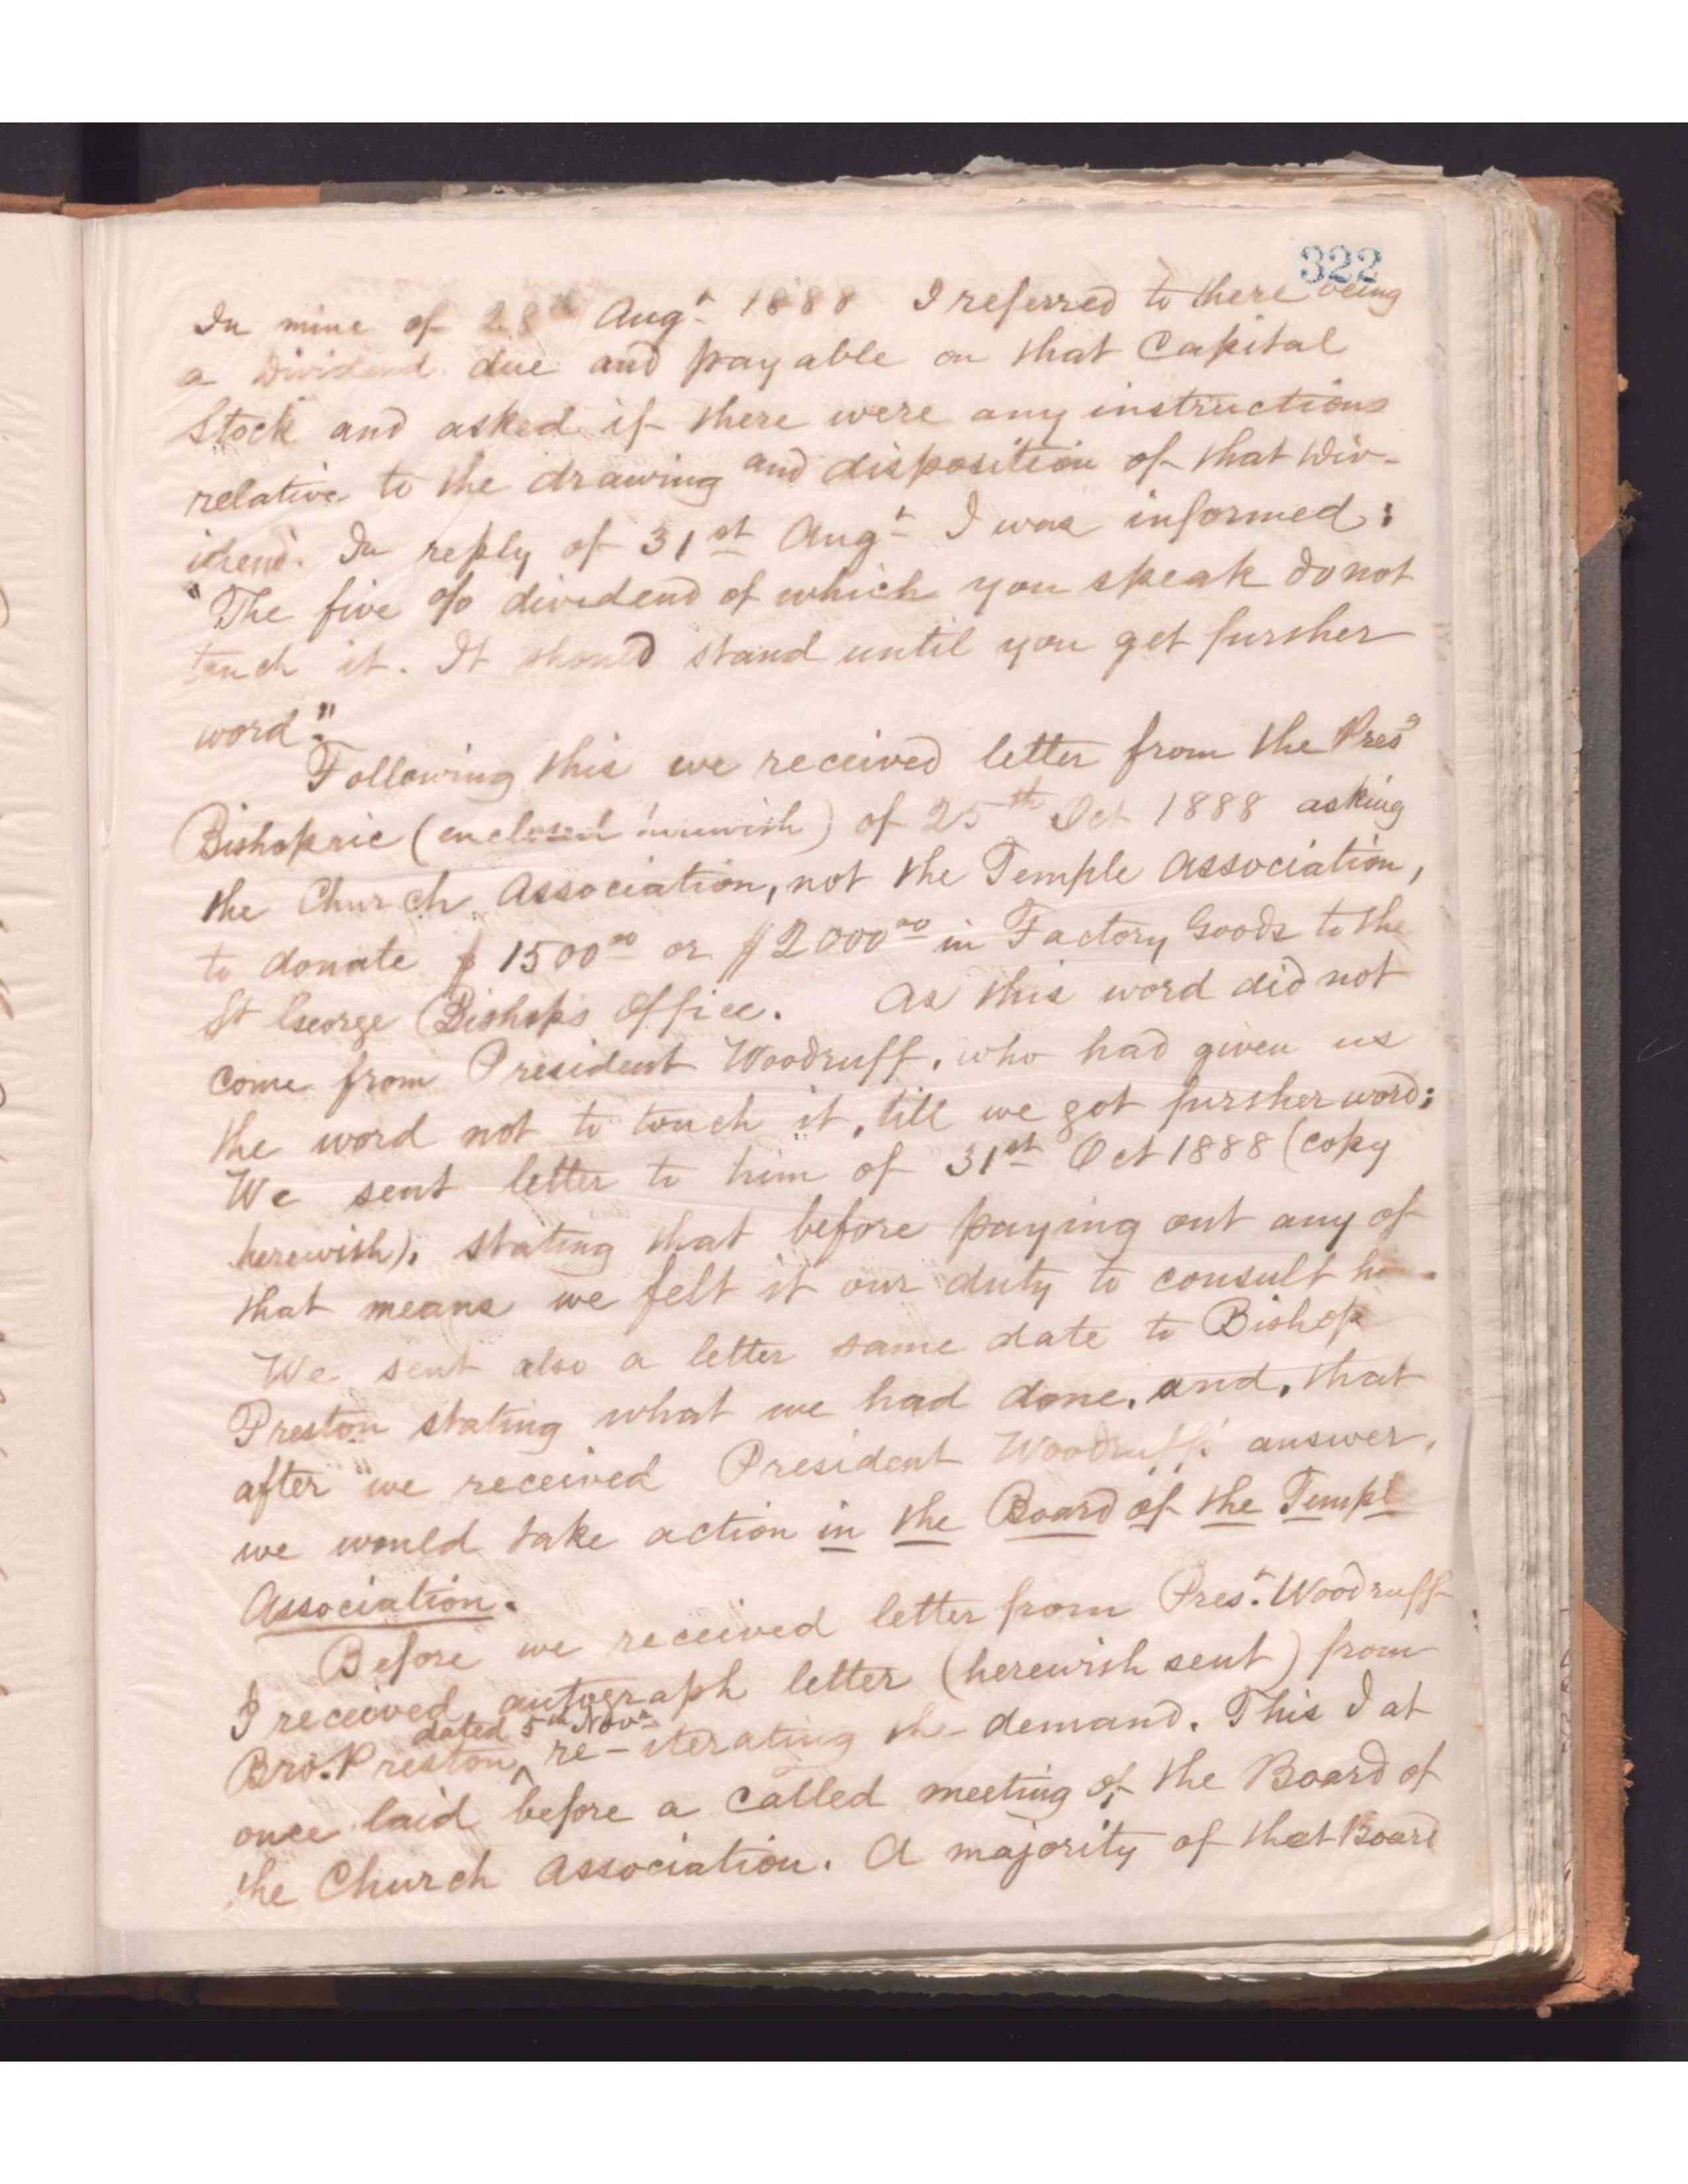 322
In mine of 28th Augt 1888 I referred to there being
a Dividend due and payable on that Capital
Stock and asked if there were any instructions
relative to the drawing and disposition of that Div-
idend. In reply of 31st Augt I was informed:
"The five % dividend of which you speak do not
touch it. It should stand until you get further
word."
Following this we received letter from the Presg
Bishopric (enclosed herewith) of 25th Oct 1888 asking
the Church Association, not the Temple Association,
to donate $1500.00 or $2000.00 in Factory Goods to the
St George Bishop's Office. As this word did not
come from President Woodruff, who had given us
the word not to touch it, till we got further word;
We sent letter to him of 31st Oct 1888 (copy
herewith), stating that before paying out any of
that means we felt it our duty to consult
We sent also a letter same date to Bishop
Preston stating what we had done, and, that
after we received President Woodruff's answer,
we would take action in the Board of the Templ
Association.
Before we received letter from Prest. Woodruff
I received autograph letter (herewith sent) from
dated 5th Novr
Bro. Preston ^ re-iterating the demand. This I at
once laid before a called meeting of the Board of
the Church Association. A majority of that Board